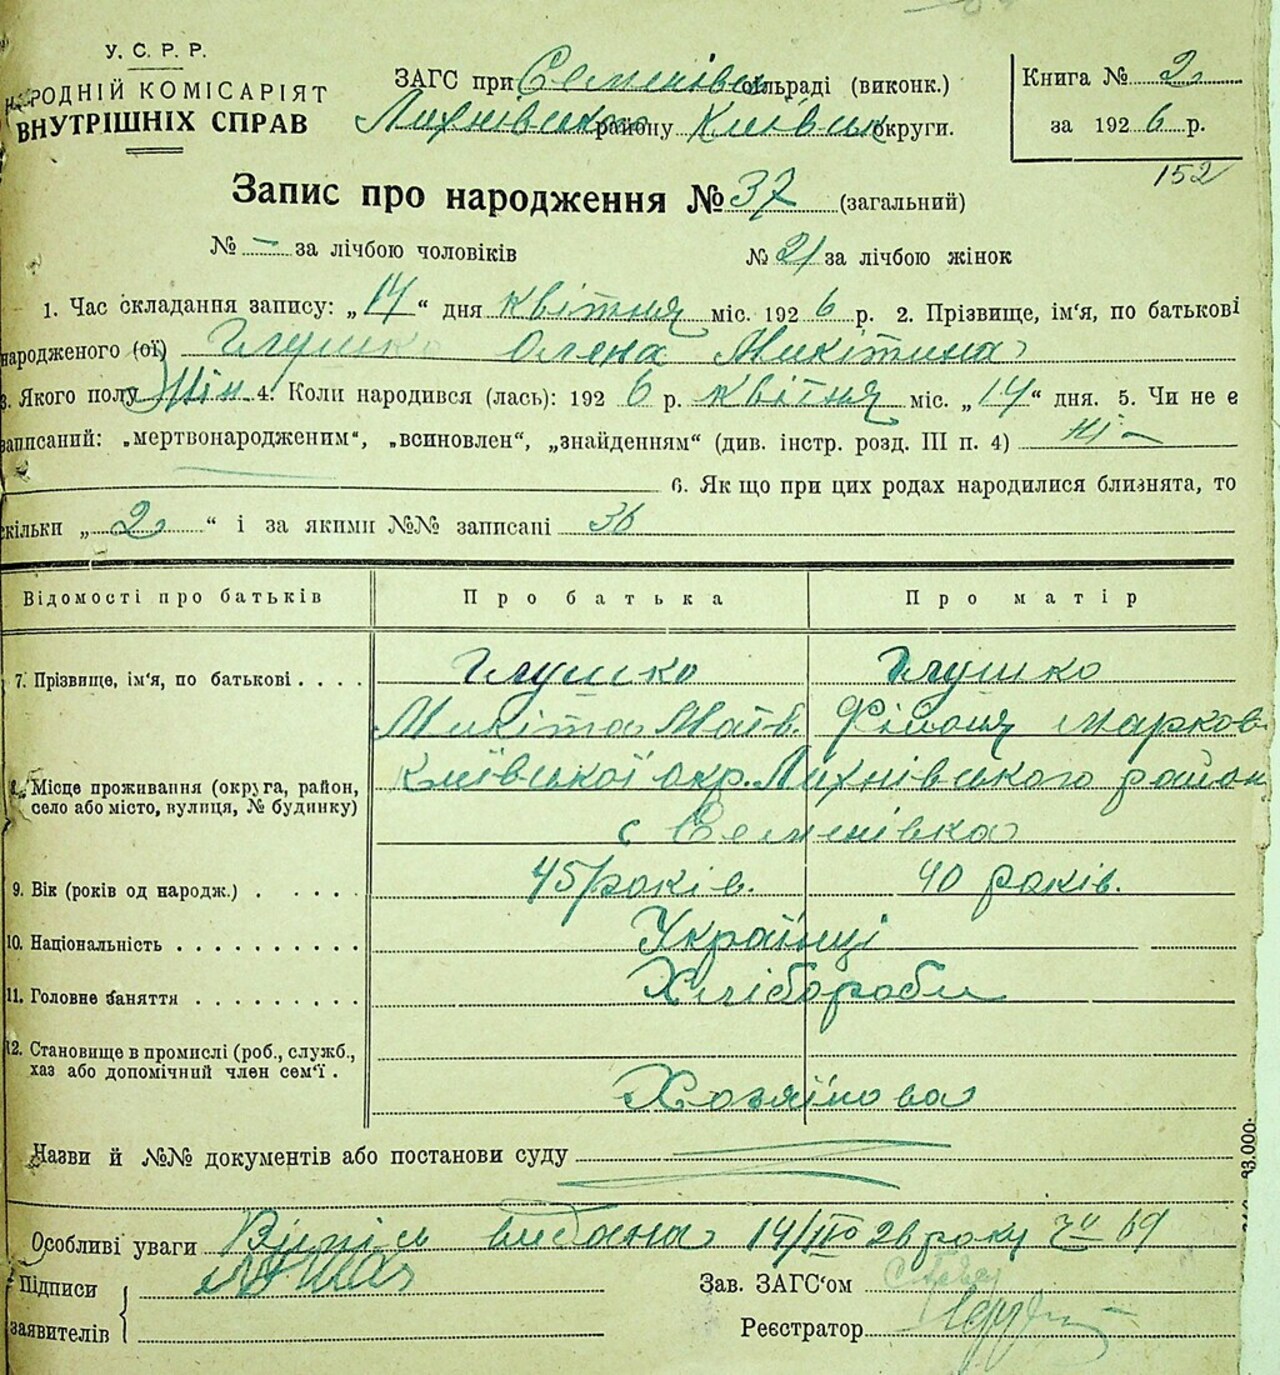 У. С. Р. Р.
НАРОДНІЙ КОМІСАРІЯТ
ВНУТРІШНІХ СПРАВ
ЗАГС при Семенівськ сільраді (виконк.)
району Київськ округи.
Книга № 2
за 1926 р.
152
Запис про народження № 37 (загальний)
№ — за лічбою чоловіків № 21 за лічбою жінок
1. Час складання запису: „14“ дня квітня міс. 1926 р. 2. Прізвище, ім'я, по батькові
народженого (ої) Глушко Олена Микітина
3. Якого полу Жін 4. Коли народився (лась): 1926 р. квітня міс. „14“ дня. 5. Чи не є
записаний: „мертвонародженим“, „всиновлен“, „знайденням“ (див. інстр. розд. III п. 4) ні —
6. Як що при цих родах народилися близнята, то
скільки „2“ і за якими №№ записані 36
Відомості про батьків Про батька Про матір
7. Прізвище, ім'я, по батькові . . . . Глушко Глушко
Микіта Марков
8. Місце проживання (округа, район, Київської окр. Лихнівського район
село або місто, вулиця, № будинку)
с Семенівка
9. Вік (років од народж.) . . . . . 45 років. 40 років.
10. Національність . . . . . . . . . . Українці
11. Головне заняття . . . . . . . . . Хлібороби
12. Становище в промислі (роб., служб.,
хаз або допомічний член сем'ї .
Хозяїнова
Назви й №№ документів або постанови суду
Особливі уваги Випись видана 26 року 69
Підписи
заявителів
Зав. ЗАГС'ом
Реєстратор